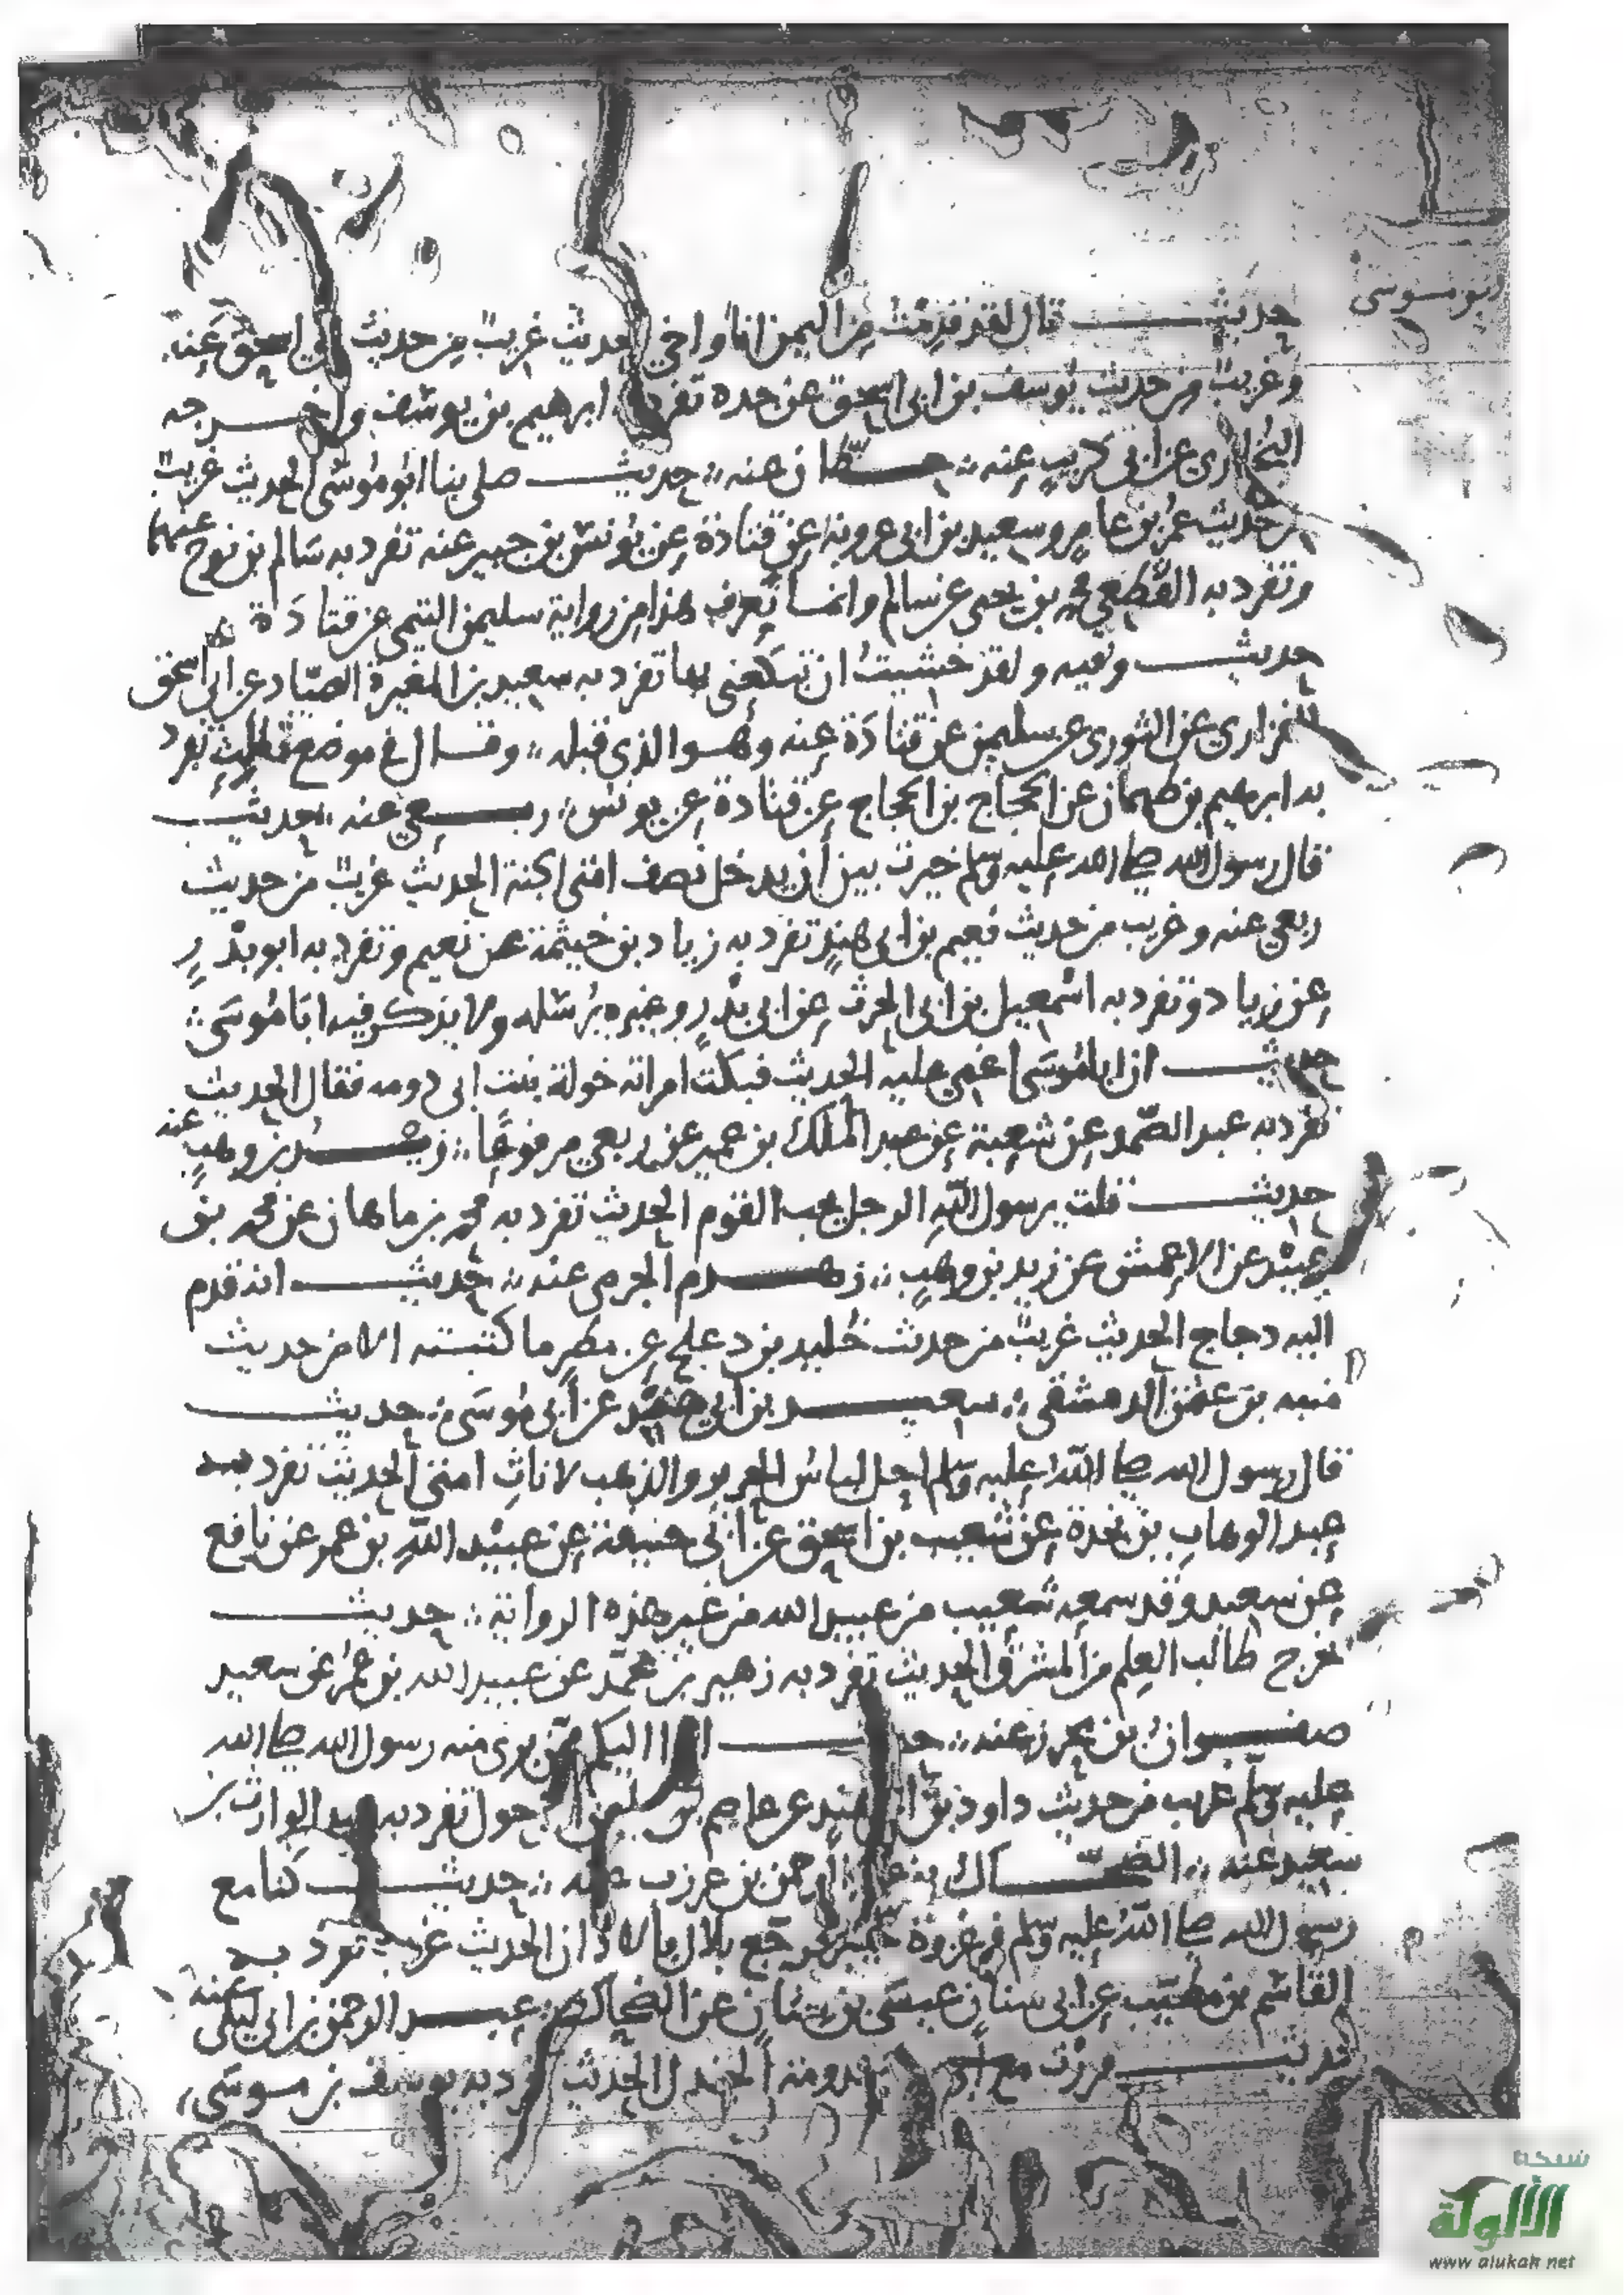 ابو موسى
حديث قال لقد قدمت من اليمن انا واخي الحديث غريب من حديث ابي اسحق عنه
وغريب من حديث يوسف بن ابي اسحق عن جده تفرد ابرهيم بن يوسف واخرجه
البخاري عن ابي كريب عنه حطان عنه حديث صلى بنا ابو موسى الحديث غريب
من حديث عمر بن عامر وسعيد بن ابي عروبة عن قتادة عن يونس بن جبير عنه تفرد به سالم بن نوح عنهما
وتفرد به القطعي محمد بن يحيى عن سالم وانما يعرف هذا من رواية سليمن التيمي عن قتادة
حديث وفيه ولقد خشيت ان تبكعني بها تفرد به سعيد بن المغيرة الصياد عن ابي اسحق
الفزاري عن الثوري عن سليمن عن قتادة عنه وهو الذي قبله وقال في موضع تفرد
به ابرهيم بن طهمان عن الحجاج بن الحجاج عن قتادة عن يونس ربعي عنه حديث
قال رسول الله صلى الله عليه وسلم خيرت بين أن يدخل نصف امتي الجنة الحديث غريب من حديث
ربعي عنه وغريب من حديث نعيم بن ابي هند تفرد به زياد بن خيثمة عن نعيم وتفرد به ابو بدر
عن زياد وتفرد به اسمعيل بن ابي الحرث عن ابي بدر وغيره يرسله ولا يذكر فيه ابا موسى
حديث ان ابا موسى اغمي عليه الحديث فبكت امراته خولة بنت ابي دومه فقال الحديث
تفرد به عبد الصمد عن شعبة عن عبد الملك بن عمير عن ربعي مرفوعا زيد بن وهب عنه
حديث قلت يرسول الله الرجل يحب القوم الحديث تفرد به محمد بن ماهان عن محمد بن
عبيد عن الاعمش عن زيد بن وهب زهدم الجرمي عنه حديث انه قدم
اليه دجاج الحديث غريب من حديث خليد بن دعلج عن مطر ما كتبته الا من حديث
منبه بن عثمن الدمشقي سعيد بن ابي هند عن ابي موسى حديث
قال رسول الله صلى الله عليه وسلم احل لباس الحرير والذهب لاناث امتي الحديث تفرد به
عبد الوهاب بن نجدة عن شعيب بن اسحق عن ابي حنيفة عن عبيد الله بن عمر عن نافع
عن سعيد وقد سمعه شعيب من عبيد الله من غير هذه الرواية حديث
يخرج طالب العلم من المشرق الحديث تفرد به زهير بن محمد عن عبيد الله بن عمر عن سعيد
صفوان بن محرز عنه حديث ابرا اليكم ممن بري منه رسول الله صلى الله
عليه وسلم غريب من حديث داود بن ابي هند عن عاصم بن سليمن الاحول تفرد به عبد الوارث بن
سعيد عنه الضحاك بن عبد الرحمن بن عرزب عنه حديث كنا مع
رسول الله صلى الله عليه وسلم في غزوة بلال بالاذان الحديث غريب تفرد به
القاسم بن مطيب عن ابي سنان عيسى بن سنان عن الضحاك عبد الرحمن بن ابي ليلى عنه
حديث مررت مع بدومة الجندل الحديث تفرد به يوسف بن موسى
شبكة
الألوكة
www alukah net